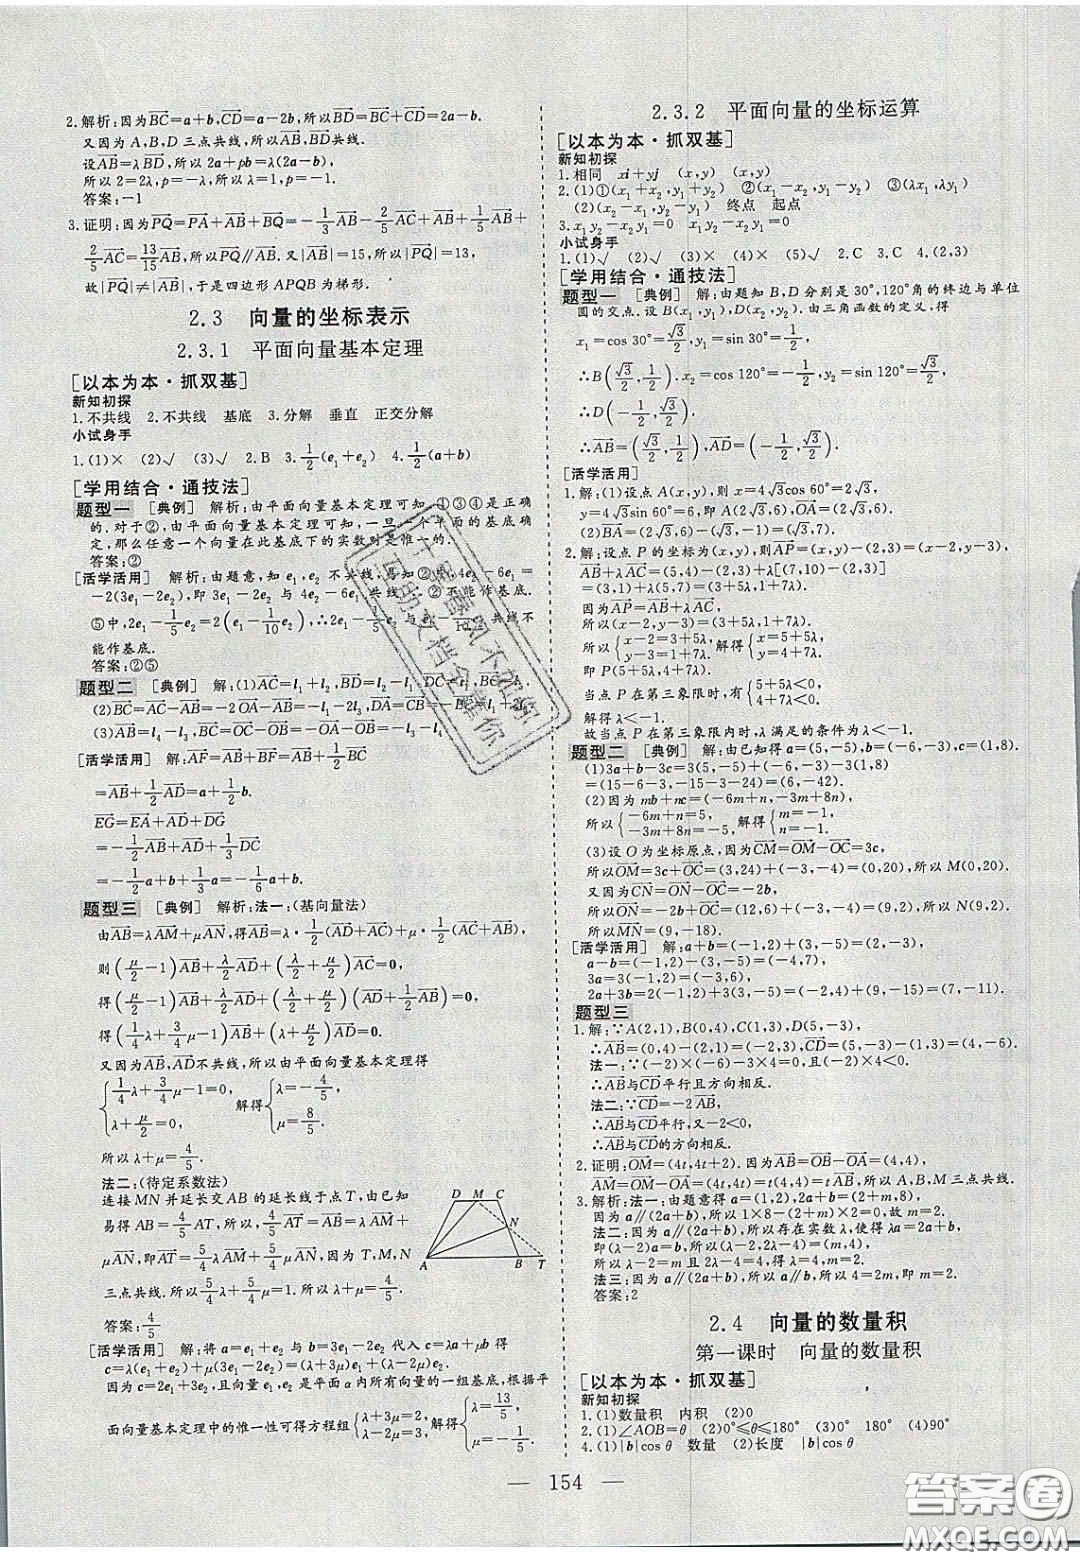 2.解析:因为BC=a+b,CD=a-2b,所以BD=BC+CD=2a-b.
又因为A,B,D三点共线,所以AB,BD共线.
设AB=λBD,所以2a+pb=λ(2a-b),
所以2=2λ,p=-λ,所以λ=1,p=-1.
答案:-1
3.证明:因为PQ=PA+AB+BQ=-1/3AB-2/5AC+AB+1/5AB+
2/5AC=13/15AB,所以PQ∥AB.又|AB|=15,所以|PQ|=13,
故|PQ|≠|AB|,于是四边形APQB为梯形.
2.3 向量的坐标表示
2.3.1 平面向量基本定理
[以本为本·抓双基]
新知初探
1.不共线 2.不共线 基底 3.分解 垂直 正交分解
小试身手
1.(1)× (2)√ (3)√ 2.B 3.1/2(e₁+e₂) 4.1/2(a+b)
[学用结合·通技法]
题型一 [典例] 解析:由平面向量基本定理可知,①③④是正确
的.对于②,由平面向量基本定理可知,一旦一个平面的基底确
定,那么任意一个向量在此基底下的实数对是惟一的.
答案:②
[活学活用] 解析:由题意,知e₁,e₂不共线,易知②中,4e₂-6e₁=
-2(3e₁-2e₂),即3e₁-2e₂与4e₂-6e₁共线,∴②不能作基底.
⑤中,2e₁-1/5e₂=2(e₁-1/10e₂),∴2e₁-1/5e₂与e₁-1/10e₂共线不
能作基底.
答案:②⑤
题型二 [典例] 解:(1)AC=l₁+l₂,BD=l₂-l₁,DC=l₁,
(2)BC=AC-AB=-2OA-AB=-l₁-2l₃,DA=CB=-BC=l₁+2l₃
(3)AB=l₄-l₃,BC=OC-OB=-OA-OB=-l₃-l₄
[活学活用] 解:AF=AB+BF=AB+1/2BC
=AB+1/2AD=a+1/2b.
EG=EA+AD+DG
=-1/2AB+AD+1/3DC
=-1/2a+b+1/3a=-1/6a+b.
题型三 [典例] 解析:法一:(基向量法)
由AB=λAM+μAN,得AB=λ·1/2(AD+AC)+μ·1/2(AC+AB),
则(μ/2-1)AB+λ/2AD+(λ/2+μ/2)AC=0,
得(μ/2-1)AB+λ/2AD+(λ/2+μ/2)(AD+1/2AB)=0,
得(1/4λ+3/4μ-1)AB+(λ+μ/2)AD=0.
又因为AB,AD不共线,所以由平面向量基本定理得
{1/4λ+3/4μ-1=0, λ+μ/2=0, 解得{λ=-4/5, μ=8/5.
所以λ+μ=4/5.
法二:(待定系数法)
连接MN并延长交AB的延长线于点T,由已知
易得AB=4/5AT,所以,4/5AT=AB=λAM+
μAN,即AT=5/4λAM+5/4μAN,因为T,M,N
三点共线.所以5/4λ+5/4μ=1.所以λ+μ=4/5.
D M C
N
A B T
答案:4/5
[活学活用] 解:将a=e₁+e₂与b=3e₁-2e₂代入c=λa+μb得
c=λ(e₁+e₂)+μ(3e₁-2e₂)=(λ+3μ)e₁+(λ-2μ)e₂.
因为c=2e₁+3e₂,且向量e₁,e₂是平面α内向量的一组基底,根据平
面向量基本定理中的惟一性可得方程组{λ+3μ=2, λ-2μ=3, 解得{λ=13/5, μ=-1/5.
2.3.2 平面向量的坐标运算
[以本为本·抓双基]
新知初探
1.相同 xi+yj (x,y) (x,y)
2.(1)①(x₁+x₂,y₁+y₂) ②(x₁-x₂,y₁-y₂) ③(λx₁,λy₁)
(2)(x₂-x₁,y₂-y₁) 终点 起点
3.x₁y₂-x₂y₁=0 x₁y₂-x₂y₁=0
小试身手
1.(1)√ (2)√ (3)× (4)× (5)√ 2.C 3.C 4.(2,3)
[学用结合·通技法]
题型一 [典例] 解:由题知B,D分别是30°,120°角的终边与单位
圆的交点.设B(x₁,y₁),D(x₂,y₂).由三角函数的定义,得
x₁=cos 30°=√3/2,y₁=sin 30°=1/2,
∴B(√3/2,1/2).x₂=cos 120°=-1/2,y₂=sin 120°=√3/2,
∴D(-1/2,√3/2).
∴AB=(√3/2,1/2),AD=(-1/2,√3/2).
[活学活用]
1.解:(1)设点A(x,y),则x=4√3cos 60°=2√3,
y=4√3sin 60°=6,即A(2√3,6),OA=(2√3,6).
(2)BA=(2√3,6)-(√3,-1)=(√3,7).
2.解:设点P的坐标为(x,y),则AP=(x,y)-(2,3)=(x-2,y-3),
AB+λAC=(5,4)-(2,3)+λ[(7,10)-(2,3)]
=(3,1)+λ(5,7)=(3+5λ,1+7λ).
因为AP=AB+λAC,
所以(x-2,y-3)=(3+5λ,1+7λ).
所以{x-2=3+5λ, y-3=1+7λ, 解得{x=5+5λ, y=4+7λ.
即P(5+5λ,4+7λ).
当点P在第三象限时,有{5+5λ<0, 4+7λ<0,
解得λ<-1.
故当点P在第三象限内时,λ满足的条件为λ<-1.
题型二 [典例] 解:由已知得a=(5,-5),b=(-6,-3),c=(1,8).
(1)3a+b-3c=3(5,-5)+(-6,-3)-3(1,8)
=(15-6-3,-15-3-24)=(6,-42).
(2)因为mb+nc=(-6m+n,-3m+8n),
所以{-6m+n=5, -3m+8n=-5, 解得{m=-1, n=-1.
(3)设O为坐标原点,因为CM=OM-OC=3c,
所以OM=3c+OC=(3,24)+(-3,-4)=(0,20),所以M(0,20).
又因为CN=ON-OC=-2b,
所以ON=-2b+OC=(12,6)+(-3,-4)=(9,2),所以N(9,2).
所以MN=(9,-18).
[活学活用] 解:a+b=(-1,2)+(3,-5)=(2,-3),
a-b=(-1,2)-(3,-5)=(-4,7),
3a=3(-1,2)=(-3,6),
2a+3b=2(-1,2)+3(3,-5)=(-2,4)+(9,-15)=(7,-11).
题型三
1.解:∵A(2,1),B(0,4),C(1,3),D(5,-3),
∴AB=(0,4)-(2,1)=(-2,3),CD=(5,-3)-(1,3)=(4,-6).
法一:∵(-2)×(-6)-3×4=0,且(-2)×4<0.
∴AB与CD平行且方向相反.
法二:∵CD=-2AB,
∴AB与CD平行,又-2<0,
∴AB与CD的方向相反.
2.证明:OM=(4t,4t+2).因为AB=OB-OA=(4,4),
AM=OM-OA=(4t,4t)=t(4,4)=tAB,所以A,B,M三点共线.
3.解析:法一:由题意得a=(1,2),2a+b=(2+m,8),
因为a∥(2a+b),所以1×8-(2+m)×2=0,故m=2.
法二:因为a∥(2a+b),所以存在实数λ,使得λa=2a+b,
即(λ-2)a=b,所以(λ-2,2λ-4)=(m,4),
所以2λ-4=4,得λ=4,所以m=2.
法三:因为a∥(2a+b),所以a∥b,所以4=2m,即m=2.
答案:2
2.4 向量的数量积
第一课时 向量的数量积
[以本为本·抓双基]
新知初探
1.(1)数量积 内积 (2)0
2.(1)∠AOB=θ (2)0°≤θ≤180° (3)0° 180° (4)90°
4.(1)|b|cosθ 数量 (2)长度 |b|cosθ
154
答案圈
MXQE.COM